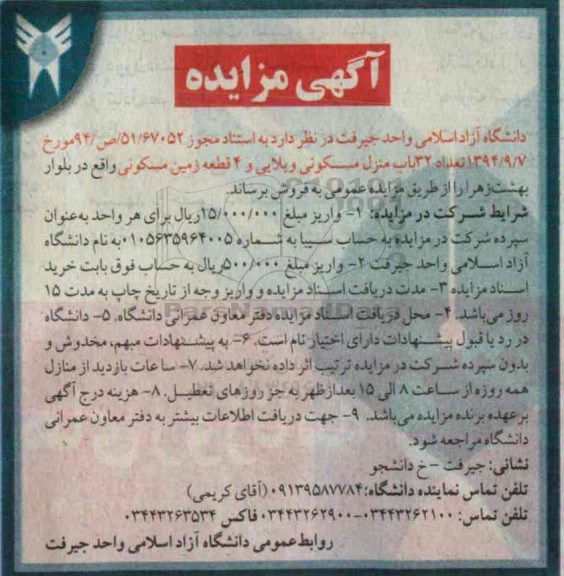 آگهی مزایده
دانشگاه آزاد اسلامی واحد جیرفت در نظر دارد به استناد مجوز ۵۱/۶۷۰۵۲/ص/۹۴مورخ
۱۳۹۴/۹/۷ تعداد ۳۲باب منزل مسکونی ویلایی و ۴ قطعه زمین مسکونی واقع در بلوار
بهشت زهرا را از طریق مزایده عمومی به فروش برساند.
شرایط شرکت در مزایده: ۱- واریز مبلغ ۱۵/۰۰۰/۰۰۰ریال برای هر واحد به عنوان
سپرده شرکت در مزایده به حساب سیبا به شماره ۰۱۰۵۶۳۵۹۶۴۰۰۵به نام دانشگاه
آزاد اسلامی واحد جیرفت ۲- واریز مبلغ ۵۰۰/۰۰۰ریال به حساب فوق بابت خرید
اسناد مزایده ۳- مدت دریافت اسناد مزایده و واریز وجه از تاریخ چاپ به مدت ۱۵
روز می‌باشد. ۴- محل دریافت اسناد مزایده دفتر معاون عمرانی دانشگاه. ۵- دانشگاه
در رد یا قبول پیشنهادات دارای اختیار تام است. ۶- به پیشنهادات مبهم، مخدوش و
بدون سپرده شرکت در مزایده ترتیب اثر داده نخواهد شد. ۷- ساعات بازدید از منازل
همه روزه از ساعت ۸ الی ۱۵ بعدازظهر به جز روزهای تعطیل. ۸- هزینه درج آگهی
بر عهده برنده مزایده می‌باشد. ۹- جهت دریافت اطلاعات بیشتر به دفتر معاون عمرانی
دانشگاه مراجعه شود.
نشانی: جیرفت - خ دانشجو
تلفن تماس نماینده دانشگاه: ۰۹۱۳۹۵۸۷۷۸۴ (آقای کریمی)
تلفن تماس: ۰۳۴۴۳۲۶۲۱۰۰-۰۳۴۴۳۲۶۲۹۰۰ فاکس ۰۳۴۴۳۲۶۳۵۳۴
روابط عمومی دانشگاه آزاد اسلامی واحد جیرفت